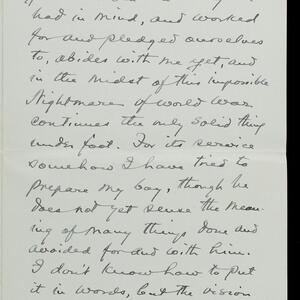 had in mind, and worked
for and pledged ourselves
to, abides with me yet, and
in the midst of this impossible
Nightmare of World War
continues the only solid thing
under foot. For its service
somehow I have tried to
prepare my boy, though he
does not yet sense the mean-
ing of many things done and
avoided for and with him.
I don't know how to put
it in words, but the vision